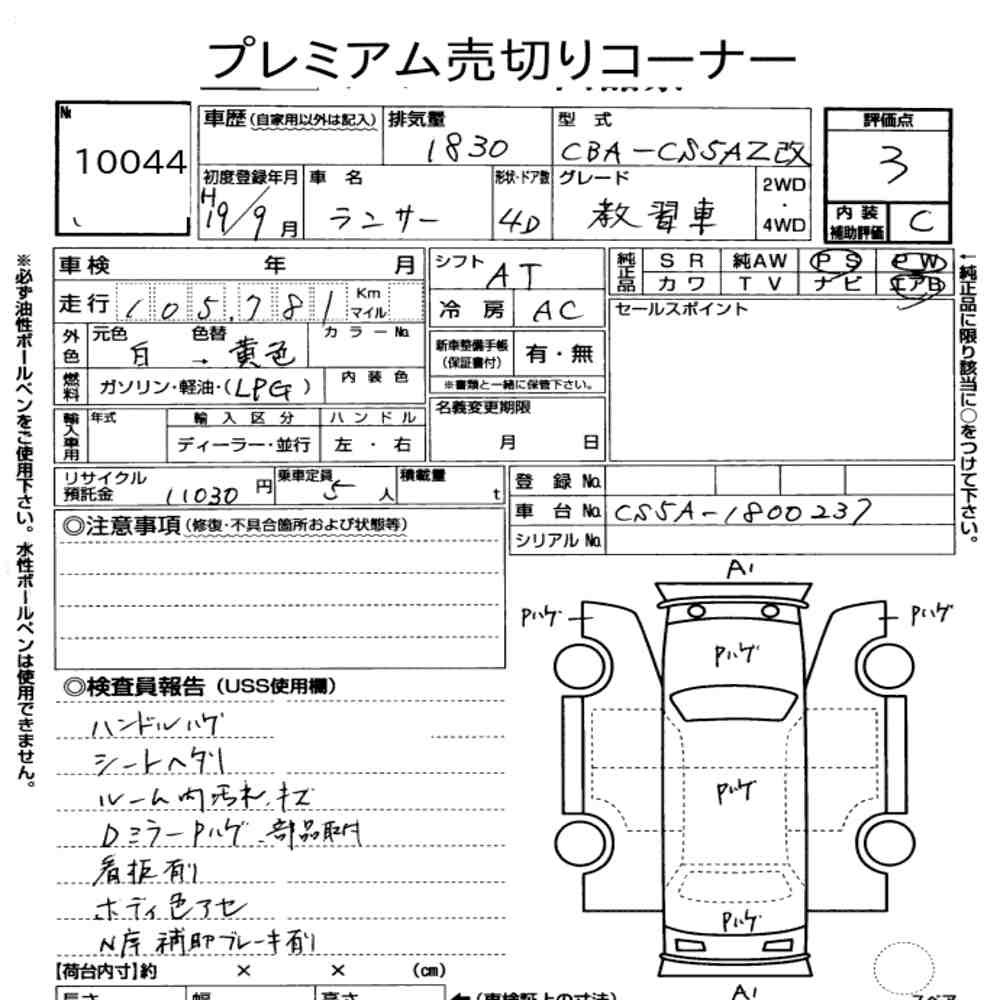 プレミアム売切りコーナー
№ 10044
車歴(自家用以外は記入)
排気量 1830
型式 CBA-CS5AZ改
評価点 3
内装補助評価 C
初度登録年月 H19/9月
車名 ランサー
形状・ドア数 4D
グレード 教習車
2WD・4WD
車検 年 月
シフト AT
純正品 SR 純AW PS PW
カワ TV ナビ エアB
走行 105,781 Km マイル
冷房 AC
セールスポイント
外色 元色 白 → 色替 黄色 カラーNo.
新車整備手帳(保証書付) 有・無
※書類と一緒に保管下さい。
燃料 ガソリン・軽油・(LPG) 内装色
名義変更期限 月 日
輸入車用 年式 輸入区分 ハンドル
ディーラー・並行 左・右
リサイクル預託金 11030円
乗車定員 5人
積載量 t
登録No.
車台No. CS5A-1800237
シリアルNo.
◎注意事項(修復・不具合箇所および状態等)
※必ず油性ボールペンをご使用下さい。水性ボールペンは使用できません。
←純正品に限り該当に○をつけて下さい。
◎検査員報告(USS使用欄)
ハンドルハゲ
シートヘタリ
ルーム内汚れ、キズ
DミラーPハゲ、部品取付
看板有り
ボディ色アセ
N庫 補助ブレーキ有り
A1
Pハゲ
Pハゲ
Pハゲ
Pハゲ
Pハゲ
A1
【荷台内寸】約 × × (cm)
長さ 幅 高さ ←(車検証上の寸法)
スペア